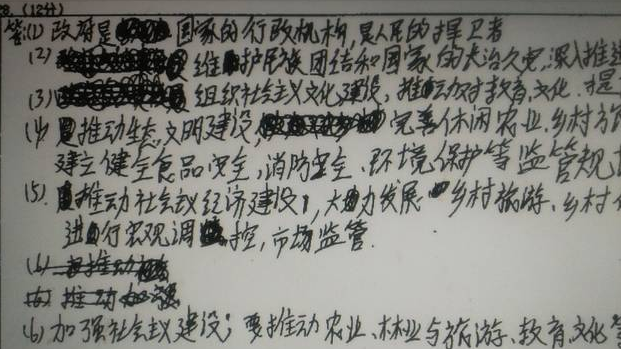 8. (12分)
答:(1) 政府是国家的行政机构,是人民的捍卫者
(2) 维护民族团结和国家的长治久安,深入推进
(3) 组织社会主义文化建设,推动对教育、文化、
(4) 推动生态文明建设,完善休闲农业、乡村旅
建立健全食品安全,消防安全、环境保护等监管规
(5). 推动社会主义经济建设,大力发展乡村旅游、乡村
进行宏观调控,市场监管.
(6) 推动
推动
(6) 加强社会主义建设;要推动农业、林业与旅游、教育、文化等